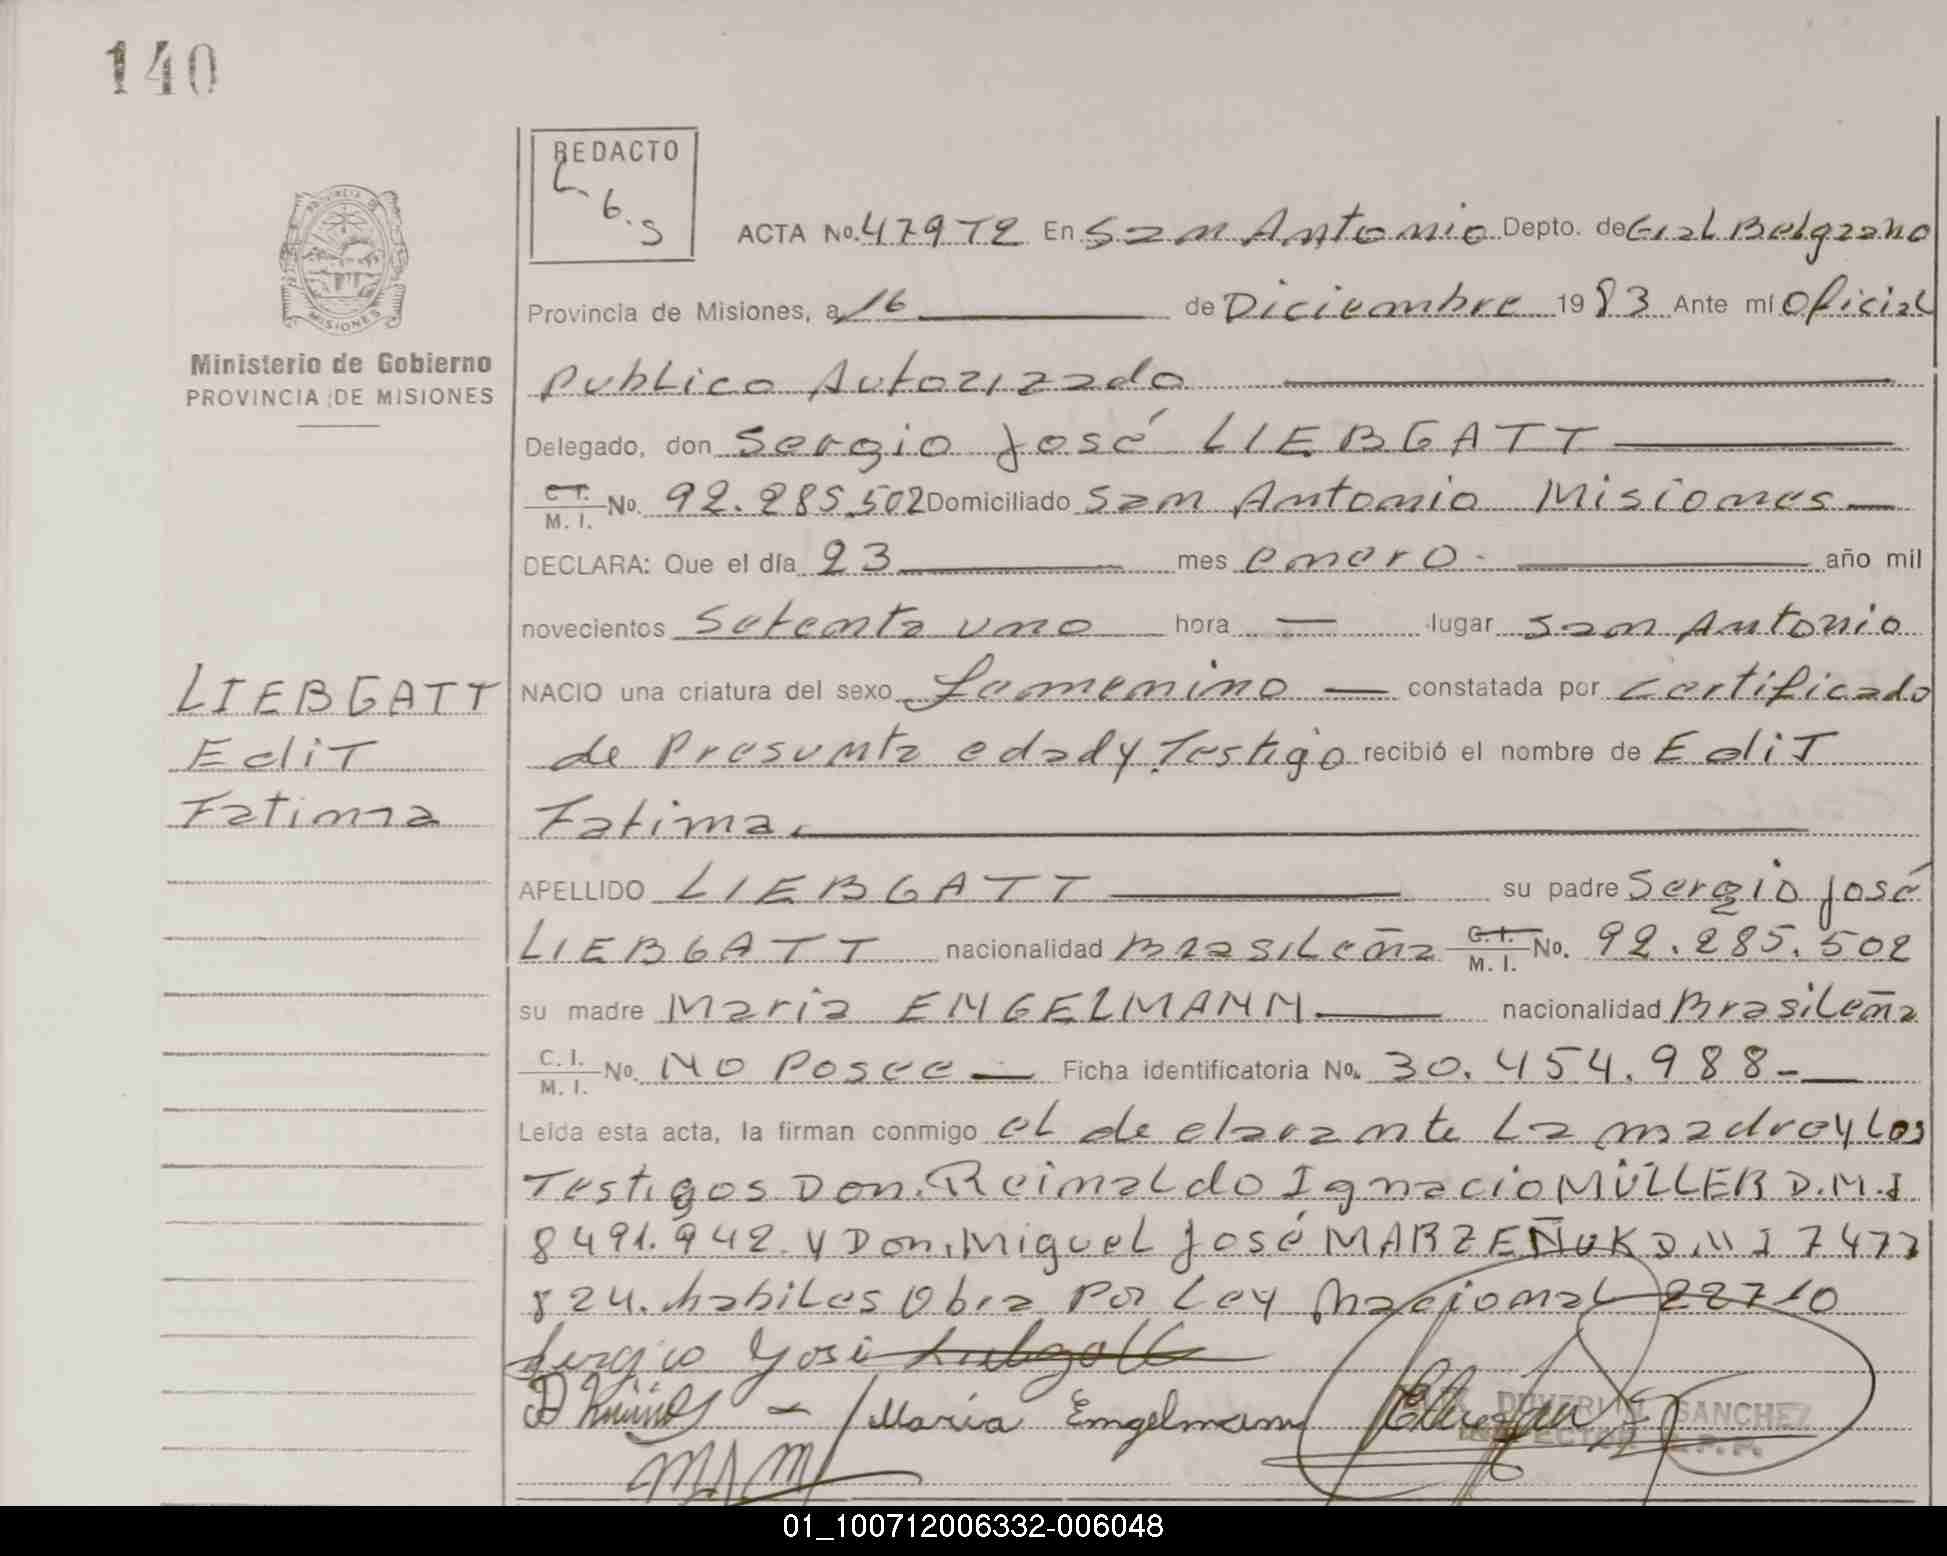 140
REDACTO
L.
6.
S
PROVINCIA DE
MISIONES
Ministerio de Gobierno
PROVINCIA DE MISIONES
ACTA No. 479 T2 En San Antonio Depto. de Gral Belgrano
Provincia de Misiones, a 16 de Diciembre 1983 Ante mí Oficial
Publico Autorizado
Delegado, don Sergio José LIEBGATT
C.I. M.I. No. 92.285.502 Domiciliado San Antonio Misiones
DECLARA: Que el día 23 mes enero año mil
novecientos Setenta uno hora — lugar San Antonio
NACIO una criatura del sexo femenino — constatada por certificado
de Presunta edad y Testigo recibió el nombre de Edit
Fatima.
LIEBGATT
Edit
Fatima
APELLIDO LIEBGATT su padre Sergio José
LIEBGATT nacionalidad Brasileña C.I. M.I. No. 92.285.502
su madre Maria ENGELMANN nacionalidad Brasileña
C.I. M.I. No. No Posee — Ficha identificatoria No. 30.454.988-
Leída esta acta, la firman conmigo el declarante La madre y Los
Testigos Don. Reinaldo Ignacio MÜLLER D.M.I
8491.942. y Don. Miguel José MARZEÑUK D.M.I 7477
824. habiles Obra Por Ley Nacional 22710
Sergio Yosé
María Engelmann
SANCHEZ
01_100712006332-006048